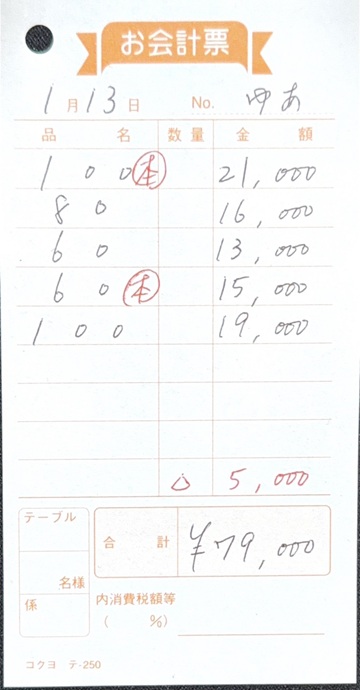 お会計票
1月13日 No. ゆあ
品名 数量 金額
100 本 21,000
80 16,000
60 13,000
60 本 15,000
100 19,000
△ 5,000
テーブル
合計 ¥79,000
名様
係
内消費税額等
( %)
コクヨ テ-250